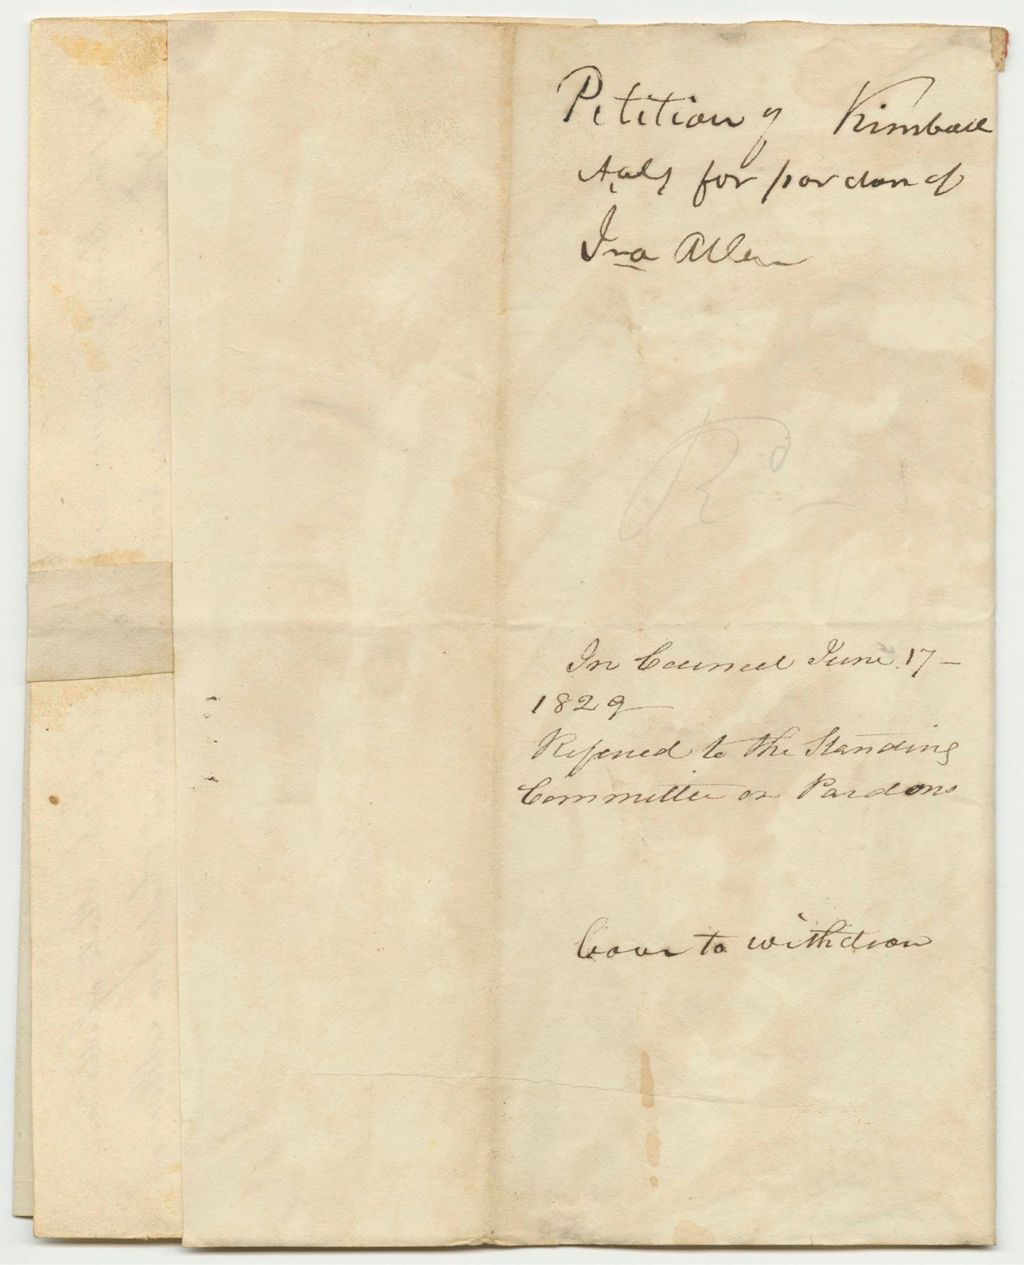 Petition of Kimball
& als for pardon of
Ira Allen
Rd
In Council June 17–
1829
Referred to the Standing
Committee on Pardons
to withdraw